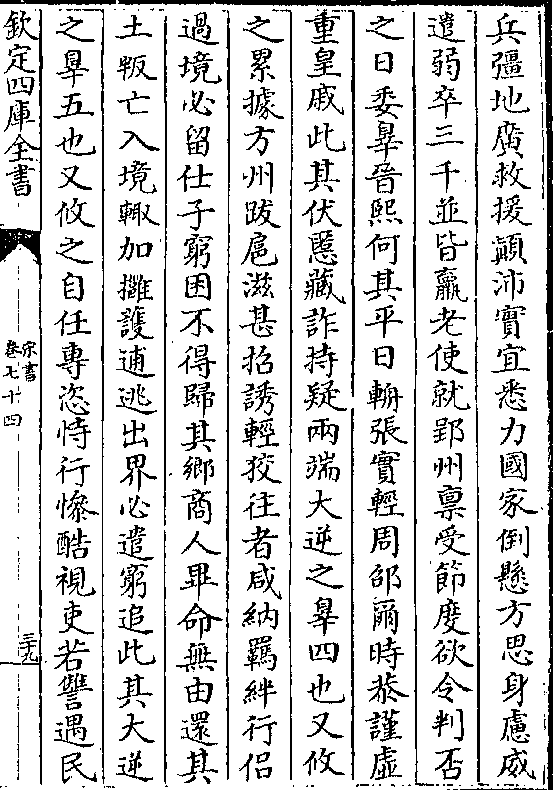 兵彊地廣救援顛沛實宜悉力國家倒懸方思身慮威
遣弱卒三千並皆羸老使就郢州禀受節度欲令判否
之日委辠晉熙何其平日輈張實輕周邵爾時恭謹虛
重皇戚此其伏慝藏詐持疑兩端大逆之辠四也又攸
之累據方州跋扈滋甚招誘輕狡往者咸納羈絆行侣
過境必留仕子窮困不得歸其鄉商人畢命無由還其
土叛亡入境輙加擁護逋逃出界必遣窮追此其大逆
之辠五也又攸之自任專恣恃行慘酷視吏若讐遇民
欽定四庫全書
宋書
卷七十四
三九